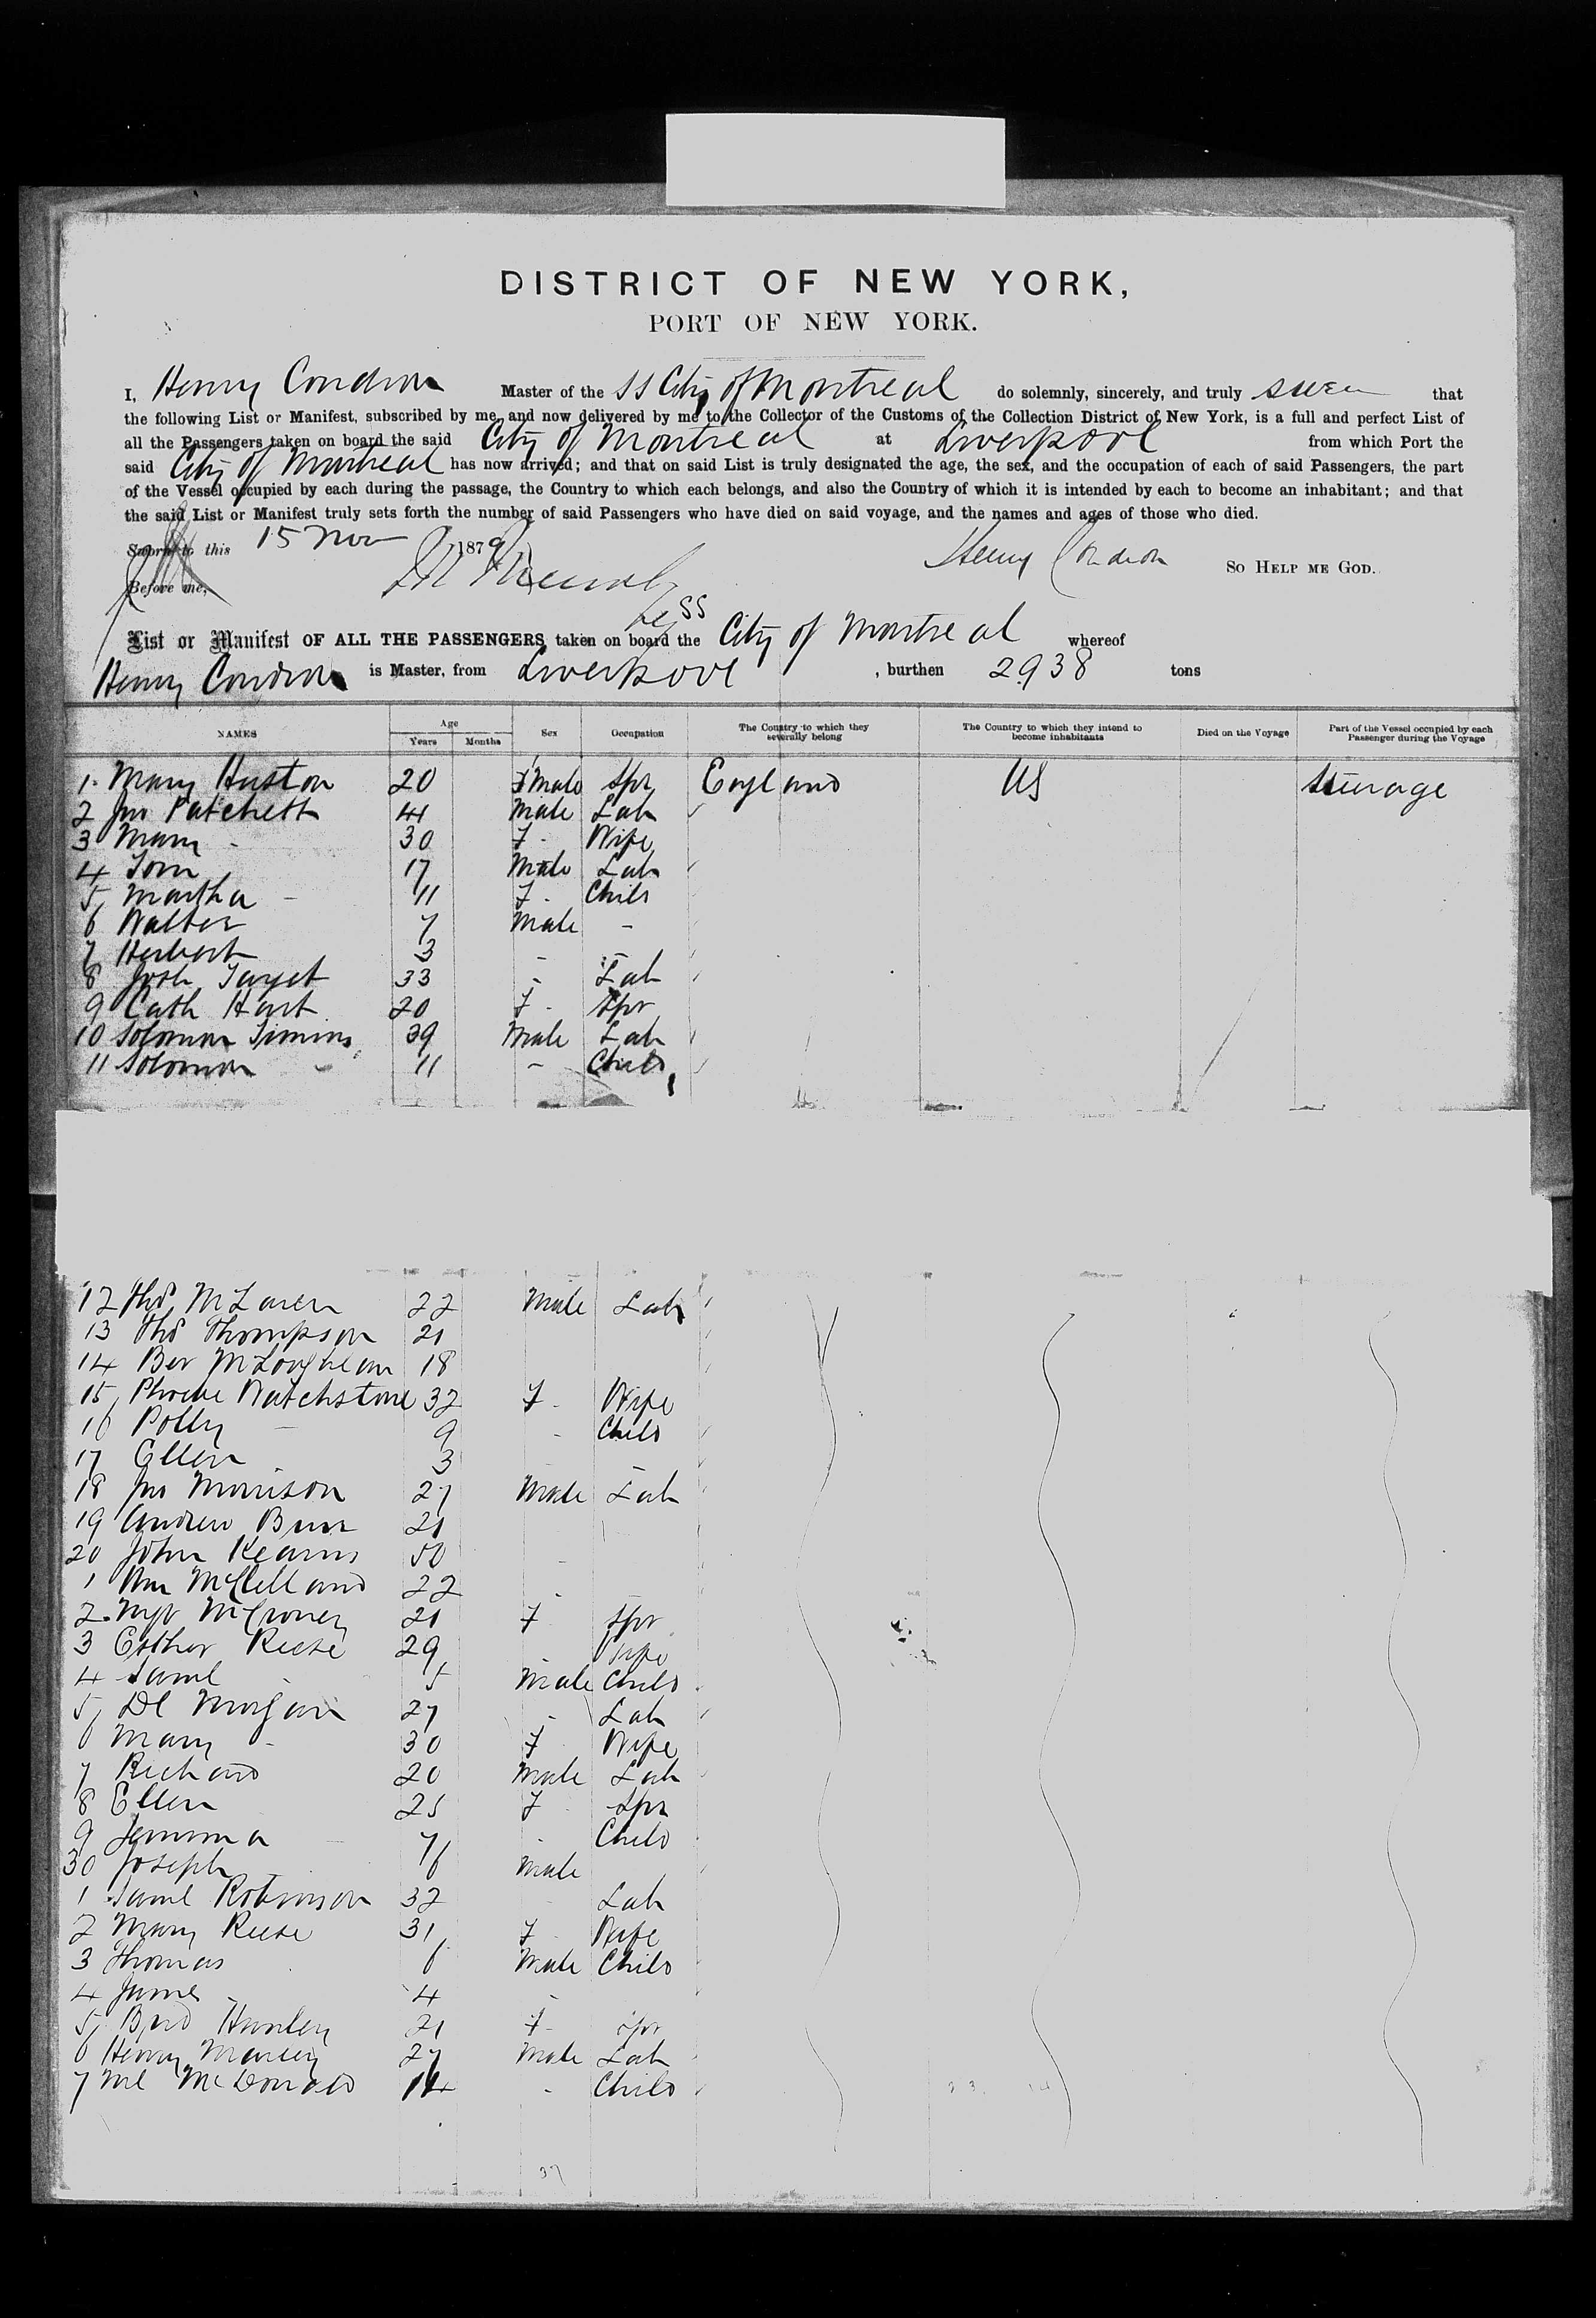 DISTRICT OF NEW YORK,
PORT OF NEW YORK.
I, Henry Condron Master of the SS City of Montreal do solemnly, sincerely, and truly swear that
the following List or Manifest, subscribed by me, and now delivered by me to the Collector of the Customs of the Collection District of New York, is a full and perfect List of
all the Passengers taken on board the said City of Montreal at Liverpool from which Port the
said City of Montreal has now arrived; and that on said List is truly designated the age, the sex, and the occupation of each of said Passengers, the part
of the Vessel occupied by each during the passage, the Country to which each belongs, and also the Country of which it is intended by each to become an inhabitant; and that
the said List or Manifest truly sets forth the number of said Passengers who have died on said voyage, and the names and ages of those who died.
Sworn to this 15 Nov 1879 Henry Condron SO HELP ME GOD.
Before me,
List or Manifest OF ALL THE PASSENGERS taken on board the SS City of Montreal whereof
Henry Condron is Master, from Liverpool , burthen 2938 tons
NAMES Age Years Months Sex Occupation The Country to which they severally belong The Country to which they intend to become inhabitants Died on the Voyage Part of the Vessel occupied by each Passenger during the Voyage
1 Mary Huston 20 Fmale Spr England US Steerage
2 Jno Patchett 41 Male Lab
3 Mary - 30 F - Wife
4 Tom 17 Male Lab
5 Martha - 11 F - Child
6 Walter 7 Male -
7 Herbert 3 - -
8 Josh Target 33 - Lab
9 Cath Hart 20 F - Spr
10 Solomon Simms 39 Male Lab
11 Solomon - 11 - Child
12 Thos McLaren 22 Male Lab
13 Thos Thompson 21
14 Ber McLoughlan 18
15 Phoebe Watchstone 32 F - Wife
16 Polly - 9 - Child
17 Ellen 3 -
18 Jno Morrison 27 Male Lab
19 Andrew Burr 21
20 John Kearns 50 -
1 Wm McClelland 22 -
2 Mgt 21 F Spr
3 Esther Reese 29 Wife
4 Saml - 5 Male Child
5 Dl Morgan 27 - Lab
6 Mary - 30 F Wife
7 Richard 20 Male Lab
8 Ellen 25 F Spr
9 Jemima - 7 - Child
30 Joseph 6 Male
1 Saml Robinson 32 Lab
2 Mary Reese 31 F Wife
3 Thomas 6 Male Child
4 James - 4 -
5 Brd Hanley 21 F - Spr
6 Henry 27 Male Lab
7 Ml McDonald 14 - Child
37